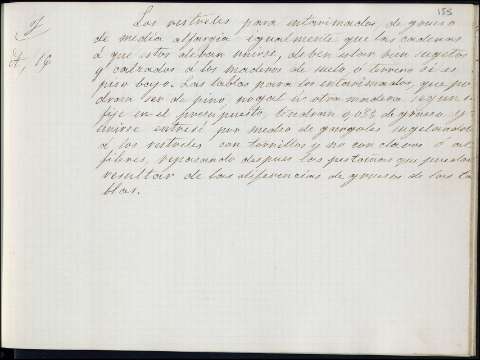 153
Los rastreles para entarimados de grueso
de media alfargia igualmente que las cadenas
á que estos deban unirse, deben estar bien sugetos
y calzados á los maderos de suelo, o terreno si es
piso bajo. Las tablas para los entarimados, que po
dran ser de pino, nogal ú otra madera segun se
fije en el presupuesto, tendran 0,034 de grueso y
unirse entre sí por medio de gargoles sugetandola
á los rastreles con tornillos y no con clavos o al
fileres, repasando despues las pestañas que puedan
resultar de las diferencias de gruesos de las ta
blas.